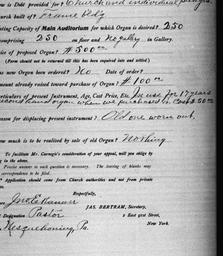 is Debt provided for? Church and individual
Church built of? Frame Bldg
Seating Capacity of Main Auditorium for which Organ is desired? 250
comprising 250 on floor and No gallery in Gallery.
of proposed Organ? $500 00
(Form should not be returned till this has been inquired into and settled.)
new Organ been ordered? No Date of order?
amount already raised toward purchase of Organ? $100 00
particulars of present Instrument, Age, Cost Price, Etc. In use for 17 years
second hand organ when we purchased it. Cost $50 00
reason for displacing present instrument? Old one worn out,
much is to be realized by sale of old Organ? Nothing
To facilitate Mr. Carnegie's consideration of your appeal, will you oblige by
the above.
Precise answer to each question is necessary. The leaving of blanks may
correspondence to be filed.
Application should come from Church authorities and not from private
Respectfully,
JAS. BERTRAM, Secretary,
Designation Pastor
2 East 91st Street,
New York.
Nesquehoning, Pa.